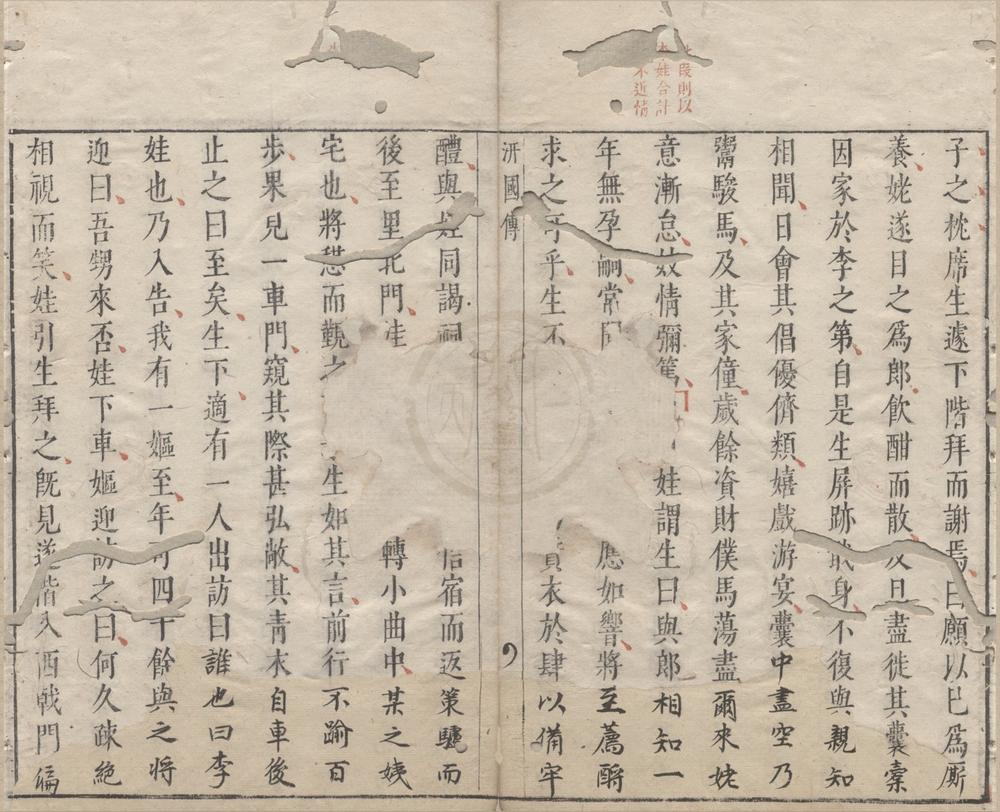 段則以
娃合計
不近情
子之枕席生遽下階拜而謝焉曰願以巳爲厮
養姥遂目之爲郎飲酣而散及旦盡徙其囊橐
因家於李之第自是生屏跡戢身不復與親知
相聞日會其倡優儕類嬉戲游宴囊中盡空乃
鬻駿馬及其家僮歲餘資財僕馬蕩盡爾來姥
意漸怠妓情彌篤娃謂生曰與郎相知一
年無孕嗣常應如響將至薦酹
求之可乎生不質衣於肆以備牢
汧國傳
醴與娃同謁祠信宿而返策驢而
後至里北門娃轉小曲中某之姨
宅也將憇而覲之生如其言前行不踰百
步果見一車門窺其際甚弘敞其青衣自車後
止之曰至矣生下適有一人出訪曰誰也曰李
娃也乃入告我有一嫗至年可四十餘與之將
迎曰吾甥來否娃下車嫗迎訪之曰何久疎絕
相視而笑娃引生拜之旣見遂偕入西戟門偏